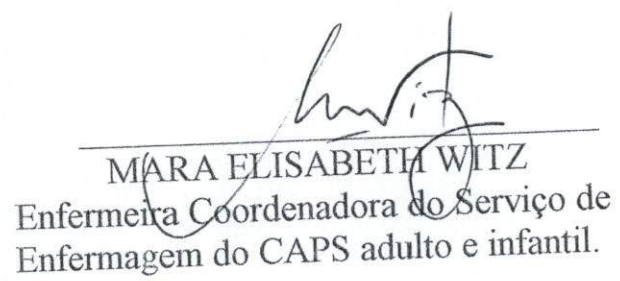 MARA ELISABETH WITZ
Enfermeira Coordenadora do Serviço de
Enfermagem do CAPS adulto e infantil.